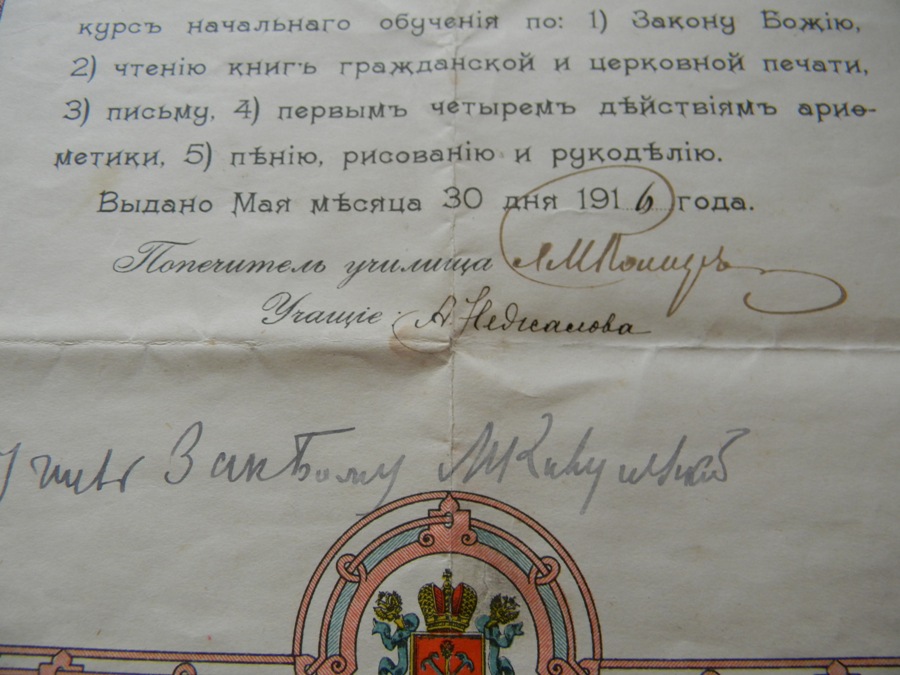 курсъ начальнаго обученія по: 1) Закону Божію,
2) чтенію книгъ гражданской и церковной печати,
3) письму, 4) первымъ четыремъ дѣйствіямъ ариѳ-
метики, 5) пѣнію, рисованію и рукодѣлію.
Выдано Мая мѣсяца 30 дня 1916 года.
Попечитель училища
Учащіе: А.